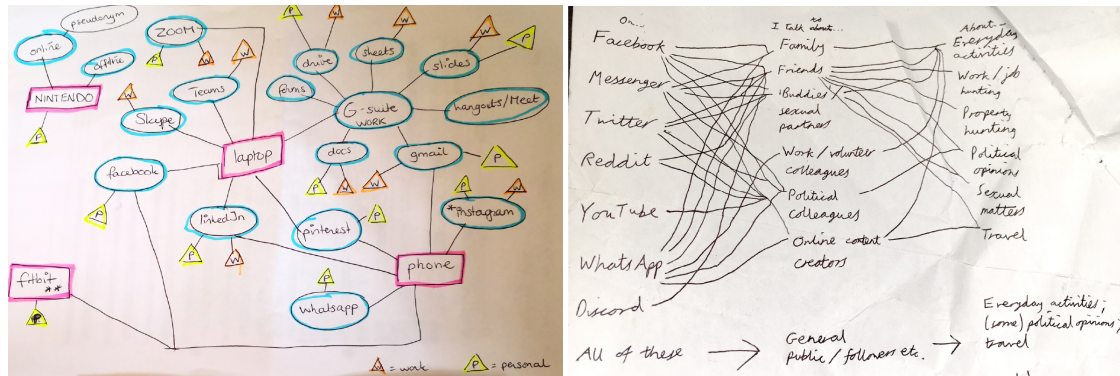 pseudonym
online
offline
NINTENDO
P
ZOOM
P
W
W
Teams
W
Skype
facebook
P
fitbit
**
P
laptop
linkedIn
P
W
pinterest
P
P
whatsapp
phone
G-suite
WORK
forms
drive
P
W
sheets
W
slides
W
P
hangouts/Meet
docs
P
W
gmail
W
P
P
W
*instagram
W = work
P = personal
On...
Facebook
Messenger
Twitter
Reddit
YouTube
WhatsApp
Discord
All of these
I talk to about...
Family
Friends
'Buddies'/
sexual
partners
Work/volunteer
colleagues
Political
colleagues
Online content
creators
General
public/followers etc.
About...
Everyday
activities
Work/job
hunting
Property
hunting
Political
opinions
Sexual
matters
Travel
Everyday activities;
(some) political opinions;
travel